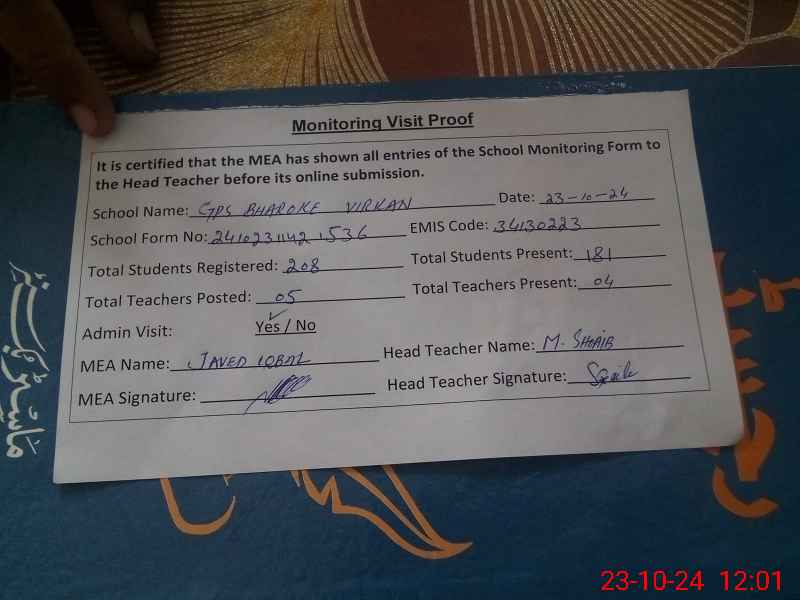 Monitoring Visit Proof
It is certified that the MEA has shown all entries of the School Monitoring Form to
the Head Teacher before its online submission.
School Name: GPS BHAROKE VIRKAN Date: 23-10-24
School Form No: 2410231142 1536 EMIS Code: 34130223
Total Students Registered: 208 Total Students Present: 181
Total Teachers Posted: 05 Total Teachers Present: 04
Admin Visit: Yes / No
MEA Name: JAVED IQBAL Head Teacher Name: M. SHOAIB
MEA Signature: Head Teacher Signature:
23-10-24 12:01